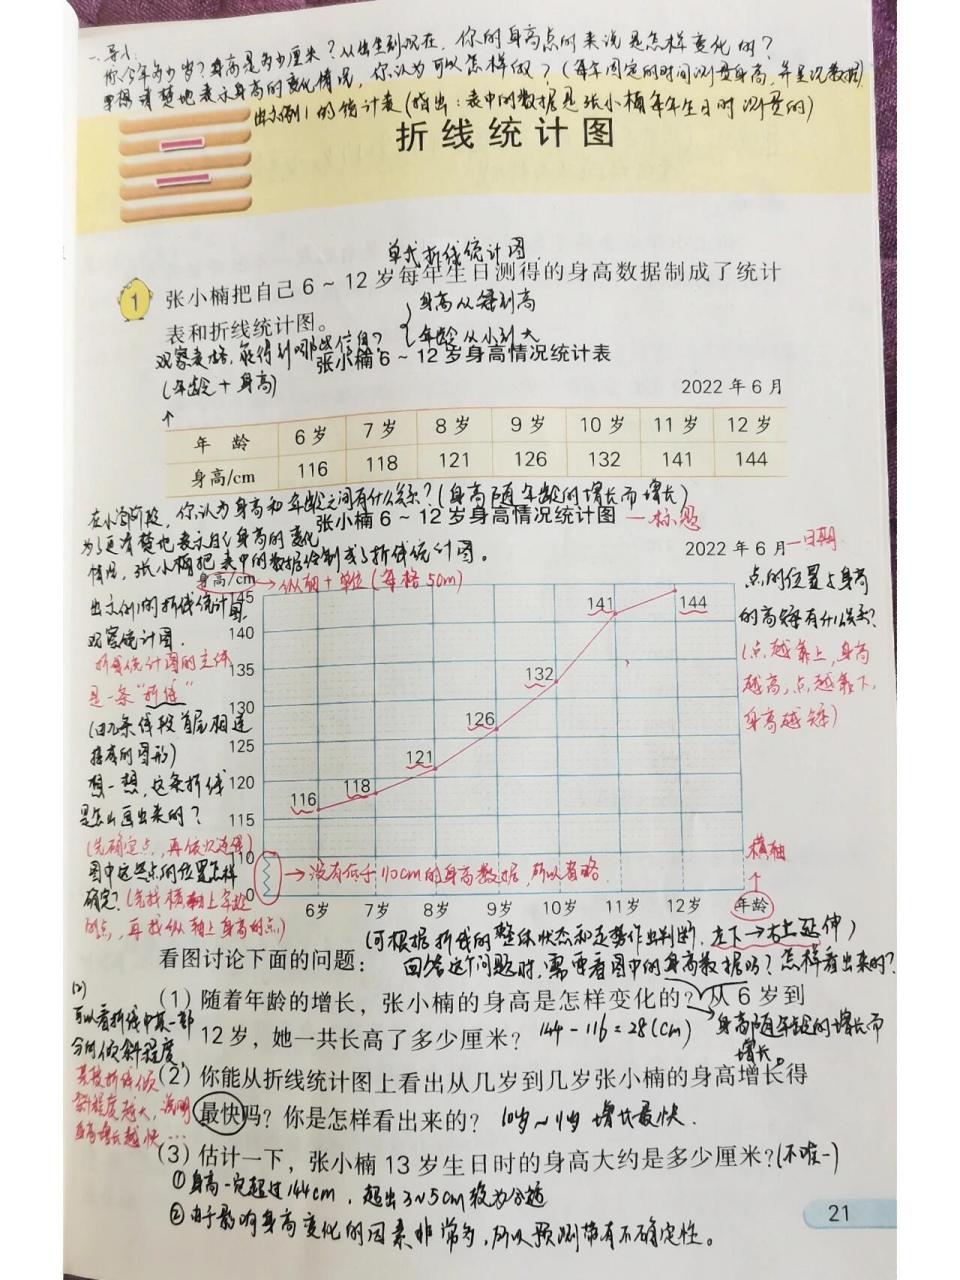 一.导入
你今年多少岁?身高是多少厘米?从出生到现在,你的身高点的来说是怎样变化的?
要想清楚地表示身高的变化情况,你认为可以怎样做?(每年固定的时间测量身高,并呈现数据)
出示例1的统计表(指出:表中的数据是张小楠每年生日时测量的)
三
折线统计图
单式折线统计图.
1 张小楠把自己6~12岁每年生日测得的身高数据制成了统计
表和折线统计图。
身高从矮到高
年龄从小到大
观察表格,能得到哪些信息?
张小楠6~12岁身高情况统计表
(年龄+身高)
2022年6月
年 龄 6岁 7岁 8岁 9岁 10岁 11岁 12岁
身高/cm 116 118 121 126 132 141 144
在小学阶段,你认为身高和年龄之间有什么关系?(身高随年龄的增长而增长)
张小楠6~12岁身高情况统计图 —标题
为了更清楚地表示自己身高的变化
情况,张小楠把表中的数据绘制成了折线统计图。
2022年6月 —日期
身高/cm →纵轴+单位(每格5cm)
出示例1的折线统计图,
观察统计图.
折线统计图的主体
是一条“折线”
(由几条线段首尾相连
接成的图形)
想一想,这条折线
是怎么画出来的?
(先确定点,再依次连线)
图中这些点的位置怎样
确定?(先找横轴上年龄
的点,再找纵轴上身高的点)
145
140
135
130
125
120
115
110
0
116 118 121 126 132 141 144
→没有低于110cm的身高数据,所以省略
6岁 7岁 8岁 9岁 10岁 11岁 12岁 年龄
横轴
点的位置与身高
的高矮有什么关系?
(点越靠上,身高
越高,点越靠下,
身高越矮)
(可根据折线的整体状态和走势作出判断,左下→右上延伸)
看图讨论下面的问题:
回答这个问题时,需要看图中的身高数据吗?怎样看出来的?
(1)随着年龄的增长,张小楠的身高是怎样变化的?从6岁到
12岁,她一共长高了多少厘米? 144-116=28(cm)
身高随年龄的增长而
增长。
(2)
可以看折线中某一部
分的倾斜程度,
某段折线倾
斜程度越大,说明
身高增长越快…
(2)你能从折线统计图上看出从几岁到几岁张小楠的身高增长得
最快吗?你是怎样看出来的? 10岁~11岁 增长最快.
(3)估计一下,张小楠13岁生日时的身高大约是多少厘米?(不唯一)
①身高一定超过144cm,超出3~5cm较为合适
②由于影响身高变化的因素非常多,所以预测带有不确定性。
21